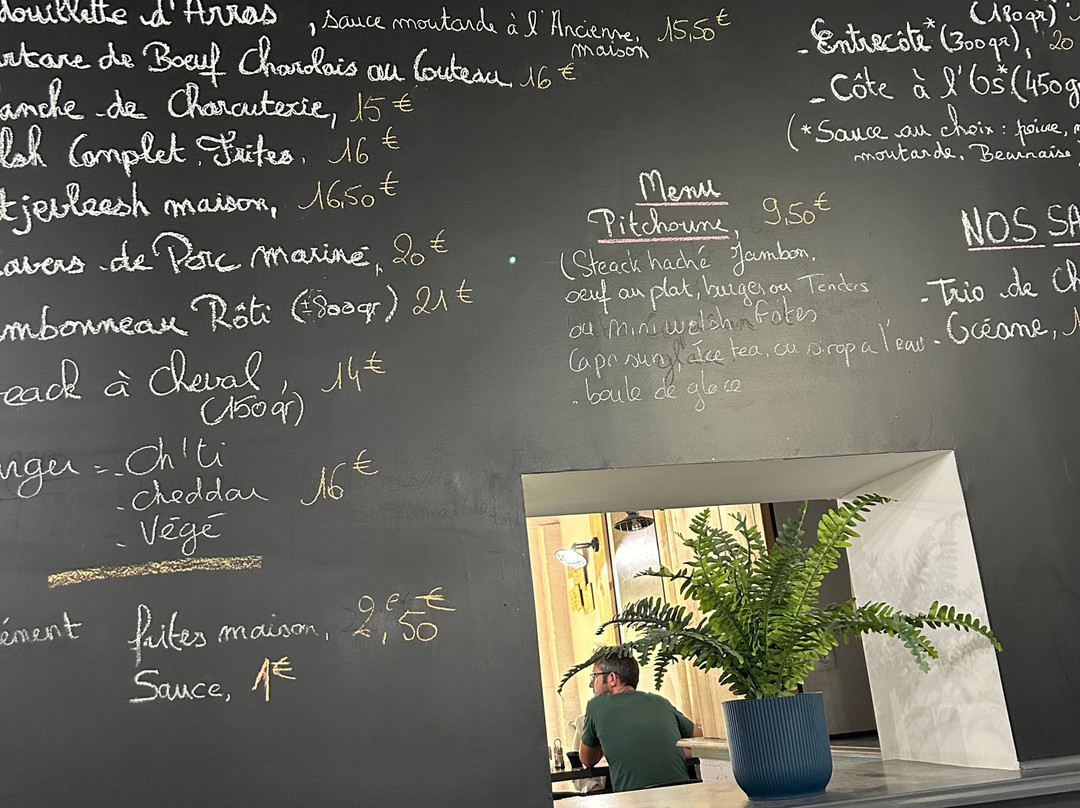 douillette d'Arras , sauce moutarde à l'Ancienne, 15,50 €
maison
rtare de Boeuf Charolais au Couteau, 16 €
anche de Charcuterie, 15 €
lsh Complet, Frites, 16 €
tjevleesh maison, 16,50 €
avers de Porc mariné, 20 €
mbonneau Rôti (±800gr) 21 €
eack à cheval, 14 €
(150 gr)
rger = - Ch'ti
- cheddar 16 €
- Végé
ément frites maison, 2,50 €
Sauce, 1 €
Menu
Pitchoune, 9,50 €
(Steack haché Jambon,
oeuf au plat, burger ou Tenders
ou mini welsh frites
Capri sun, Ice tea, ou sirop a l'eau
- boule de glace
(180gr) :
- Entrecôte* (300gr), 20
- Côte à l'Os* (450g
(*Sauce au choix : poivre,
moutarde, Bearnaise
NOS SA
- Trio de Ch
- Océane, 1